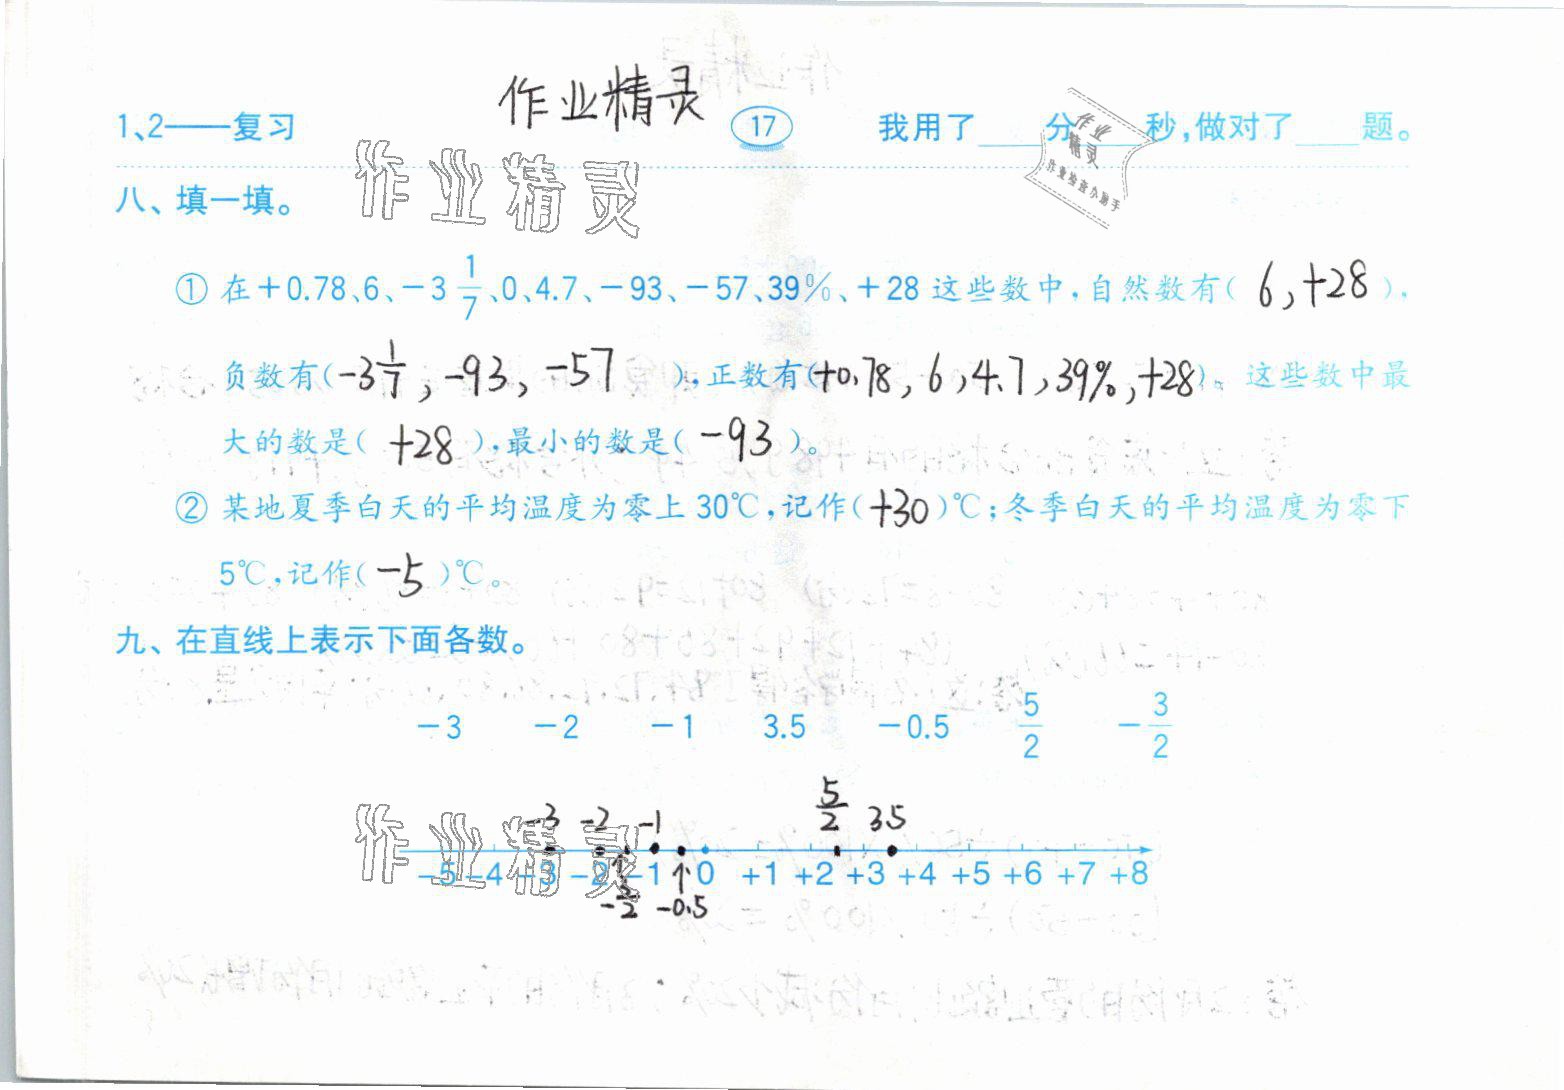 作业精灵
1、2——复习 17 我用了____分____秒,做对了____题。
作业精灵
作业精灵
作业检查小助手
八、填一填。
① 在+0.78、6、-3 1/7、0、4.7、-93、-57、39%、+28 这些数中,自然数有( 6,+28 ),
负数有(-3 1/7,-93,-57 ),正数有(+0.78,6,4.7,39%,+28)。这些数中最
大的数是( +28 ),最小的数是( -93 )。
② 某地夏季白天的平均温度为零上 30℃,记作(+30)℃;冬季白天的平均温度为零下
5℃,记作( -5 )℃。
九、在直线上表示下面各数。
-3 -2 -1 3.5 -0.5 5/2 -3/2
作业精灵
-3 -2 -1 5/2 3.5
-5 -4 -3 -2 -1 0 +1 +2 +3 +4 +5 +6 +7 +8
-3/2 -0.5